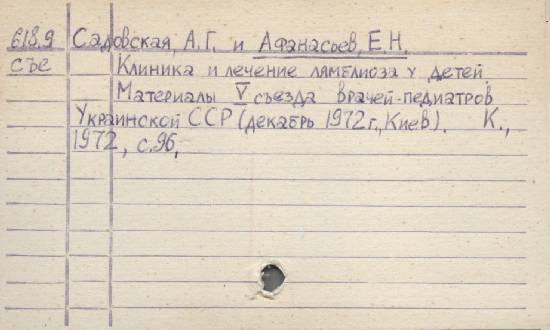 618.9 Садовская, А.Г. и Афанасьев, Е.Н.
СЪЕ Клиника и лечение лямблиоза у детей.
Материалы V съезда врачей-педиатров
Украинской ССР (декабрь 1972 г., Киев). К.,
1972, с.96,